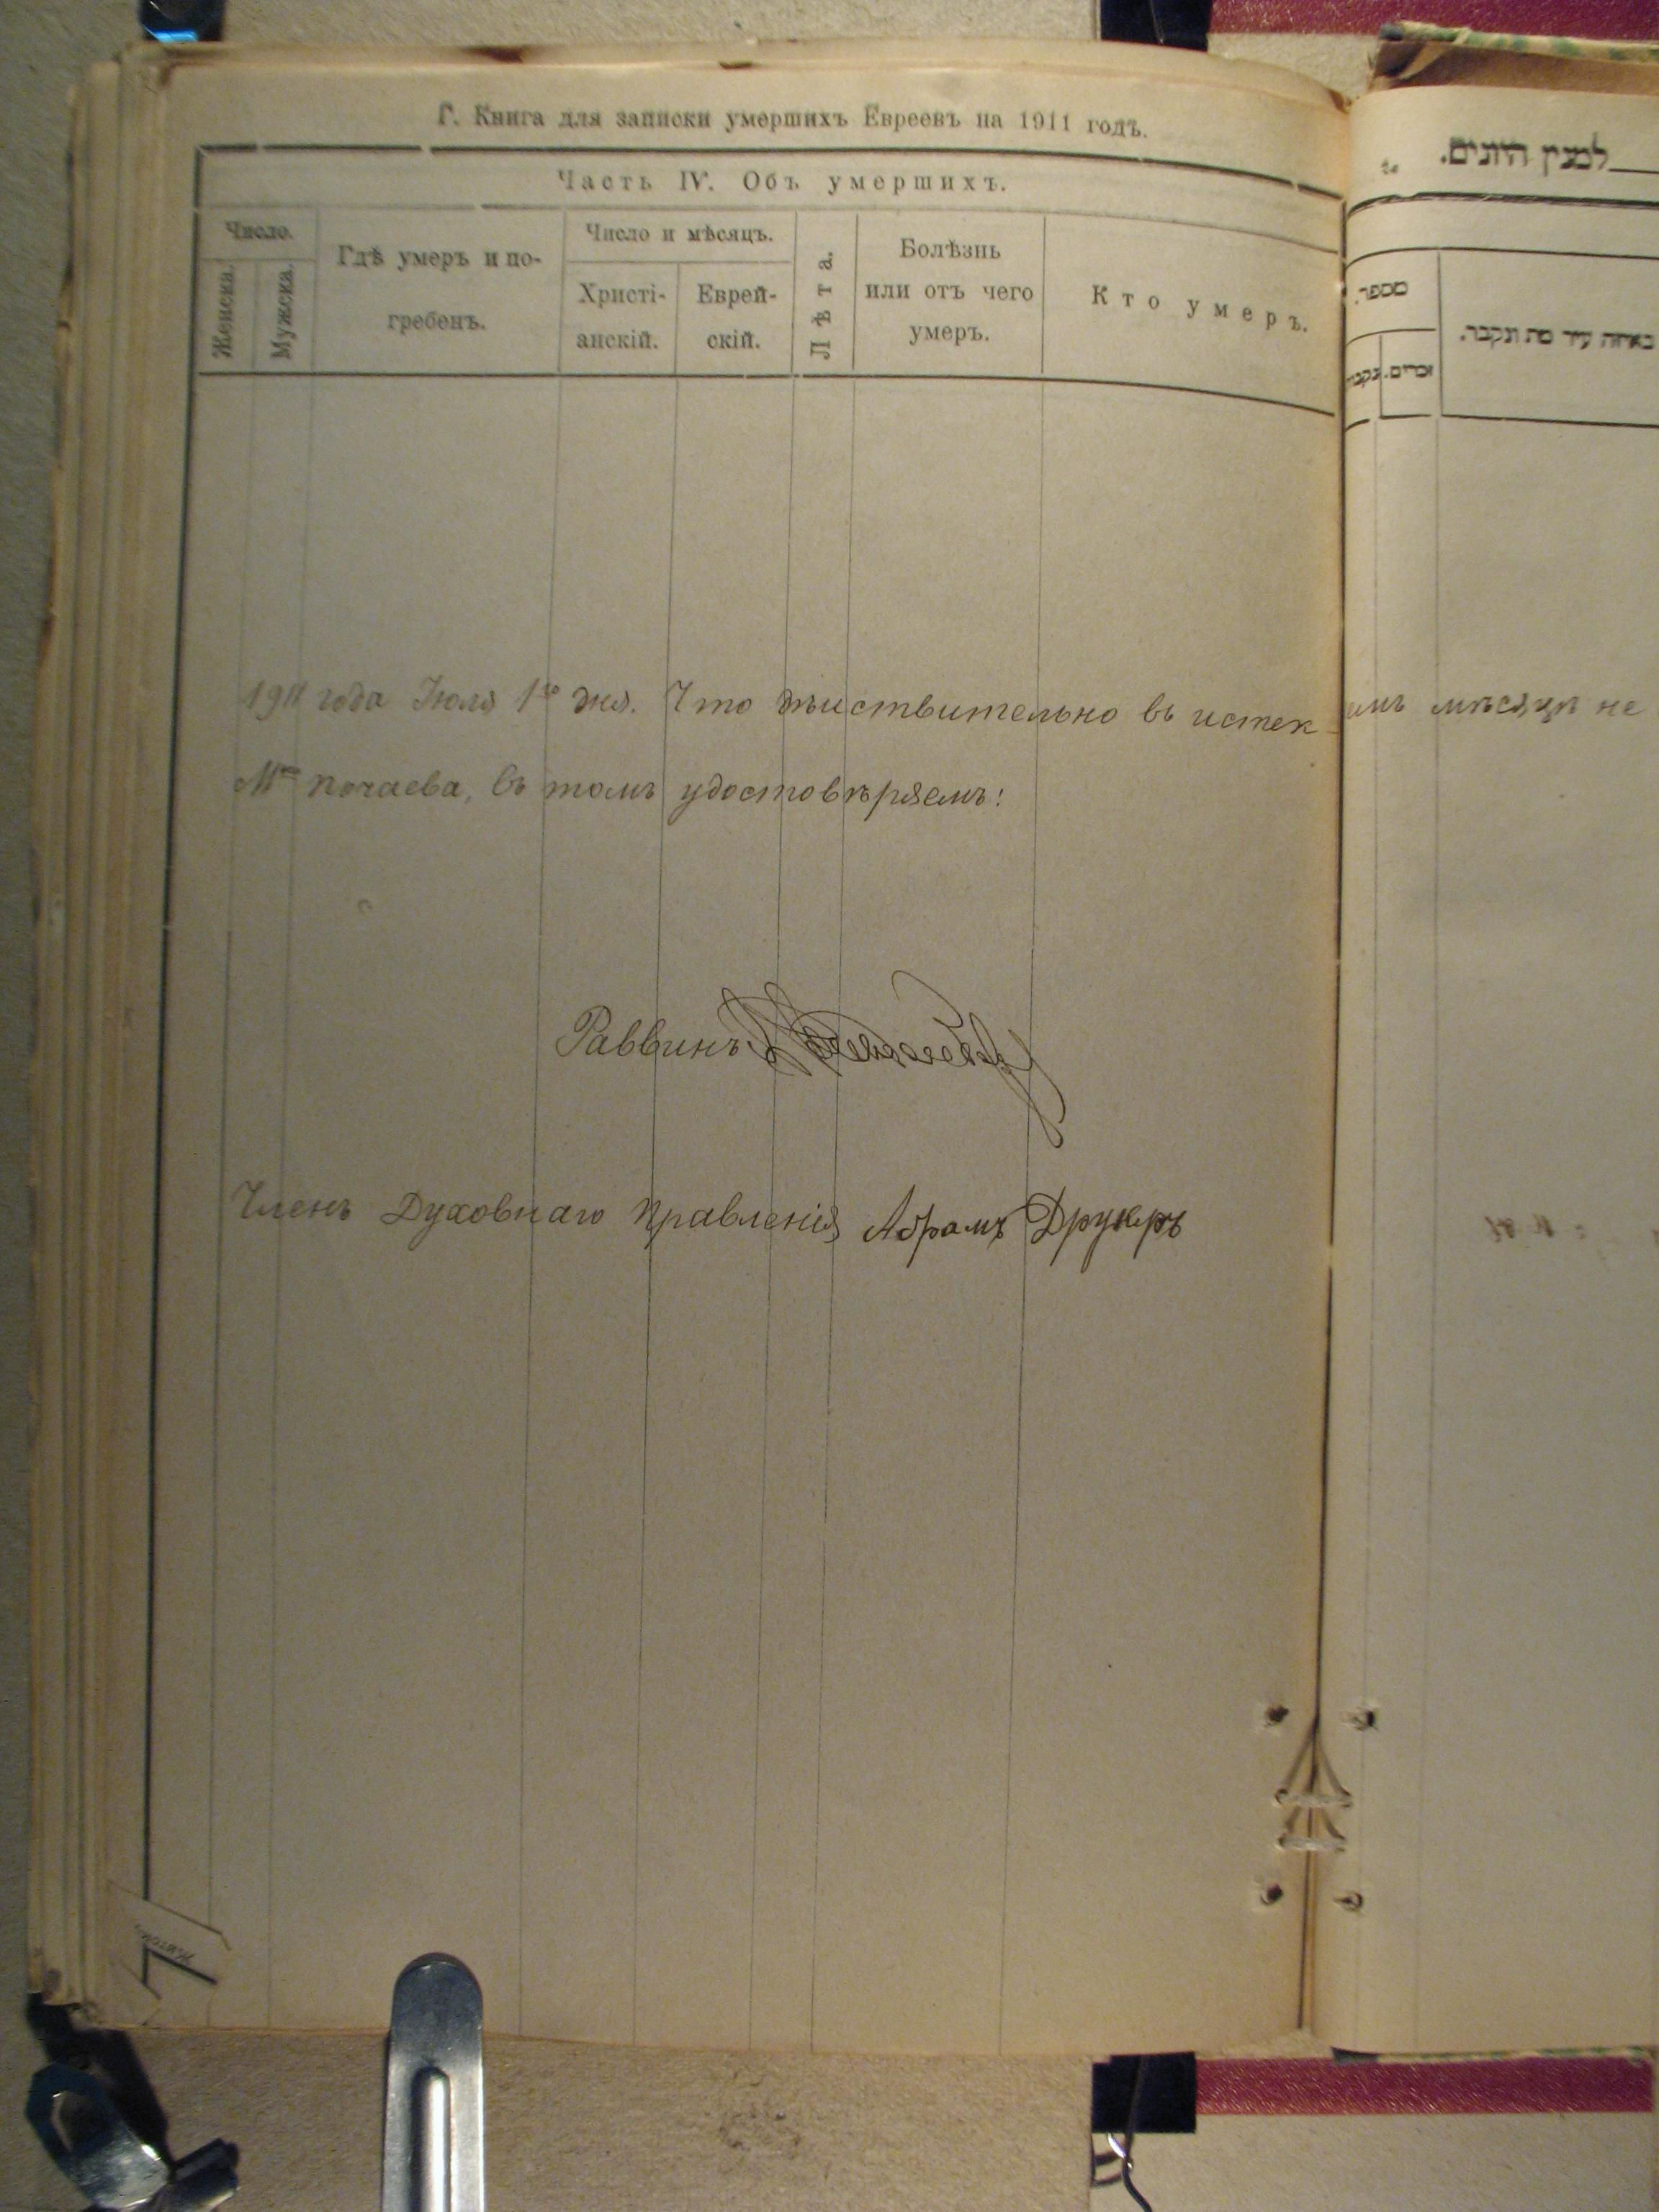 Г. Книга для записки умершихъ Евреевъ на 1911 годъ.
Часть IV. Объ умершихъ.
Число.
Женска.
Мужска.
Гдѣ умеръ и по-
гребенъ.
Число и мѣсяцъ.
Христі-
анскій.
Еврей-
скій.
Лѣта.
Болѣзнь
или отъ чего
умеръ.
Кто умеръ.
למנין היונים.
מספר.
זכרים.
באיזה עיר מת ונקבר.
1911 года Іюля 1го дня. Что дѣиствительно въ истек-имъ мѣсяцѣ не
Мко Почаева, въ томъ удостовѣряемъ:
Раввинъ
Членъ Духовнаго Правленія Абрамъ Друкеръ